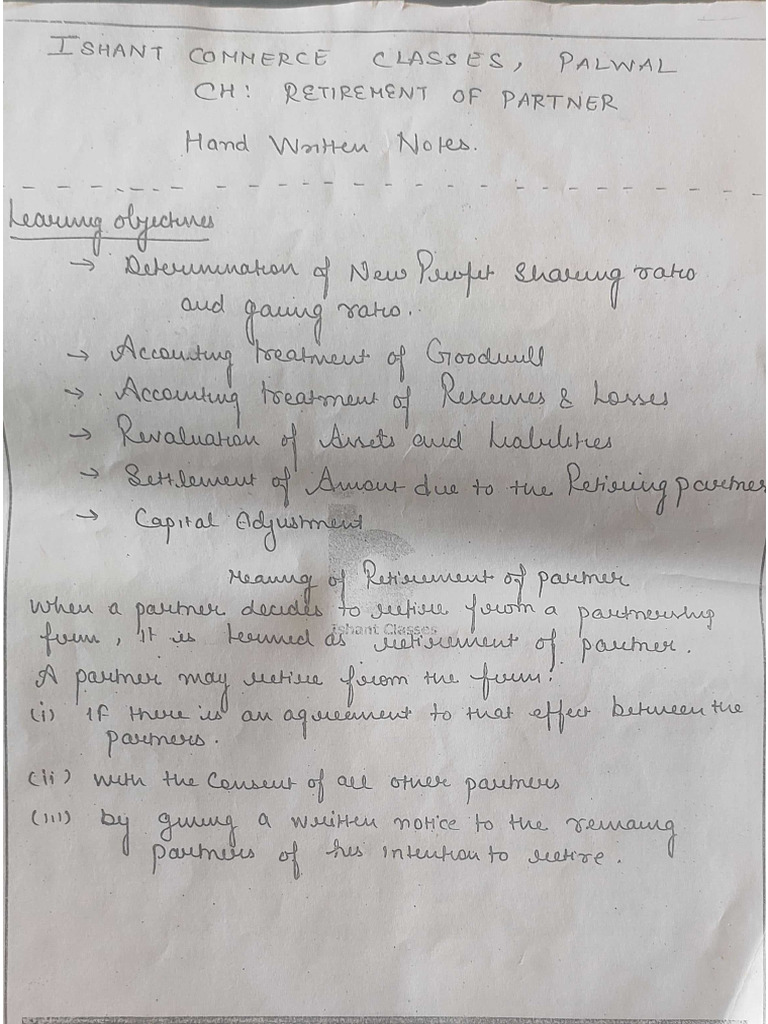 ISHANT COMMERCE CLASSES, PALWAL
CH: RETIREMENT OF PARTNER
Hand Written Notes.
Learing objectives
→ Determination of New Profit sharing ratio
and gaing ratio.
→ Accounting treatment of Goodwill
→ Accounting treatment of Reserves & Losses
→ Revaluation of Assets and Liabilities
→ Settlement of Amount due to the Retiering partner
→ Capital Adjustment
Meaning of Retirement of partner
When a partner decides to retire from a partnership
firm, It is termed as retirement of partner.
Ishant Classes
A partner may retire from the firm:
(i) If there is an agreement to that effect between the
partners.
(ii) with the Consent of all other partners
(iii) by giving a written notice to the remaing
partners of his intention to retire.